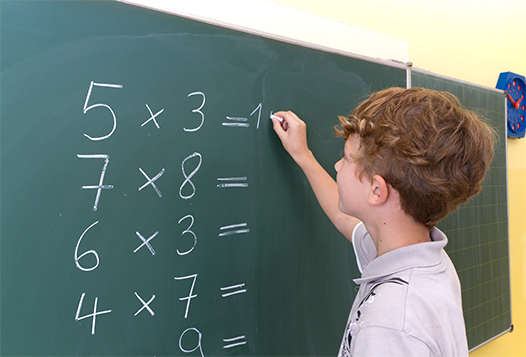 5 × 3 = 1
7 × 8 =
6 × 3 =
4 × 7 =
9 =